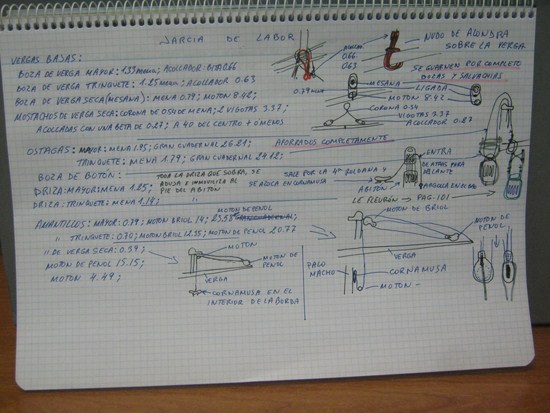 JARCIA DE LABOR
VERGAS BAJAS:
BOZA DE VERGA MAYOR: 1.33 MENA; ACOLLADOR: 0.66
BOZA DE VERGA TRINQUETE: 1.25 MENA: ACOLLADOR 0.63
BOZA DE VERGA SECA (MESANA): MENA 0.79; MOTON 8.42;
MOSTACHOS DE VERGA SECA: CORONA DE 0.54 DE MENA; 2 VIGOTAS 3.37
ACOLLADAS CON UNA BETA DE 0.27; A 40 DEL CENTRO + Ó MENOS
NUDO DE ALONDRA
SOBRE LA VERGA.
0.66
0.63
SE GUARNEN POR COMPLETO
BOZAS Y SALVACHIAS
0.79 MENA
MESANA
LIGADA
MOTON 8.42
CORONA 0.54
VIGOTAS 3.37
ACOLLADOR 0.27
OSTAGAS: MAYOR: MENA 1.95; GRAN CUADERNAL 26.21;
TRINQUETE: MENA 1.79; GRAN CUADERNAL 24.12;
AFORRADOS COMPLETAMENTE
BOZA DE BOTÓN:
TODA LA DRIZA QUE SOBRA, SE
ADUJA E INMOVILIZA AL
PIE DEL ABITON
SALE POR LA 4ª ROLDANA Y
SE AZOCA EN CORNAMUSA
ABITON
ENTRA
DE ATRAS PARA
ADELANTE
DRIZA: MAYOR: MENA 1.25
DRIZA: TRINQUETE: MENA 1.19;
LE FLEURÓN → PAG. 101
AMANTILLOS: MAYOR: 0.79; MOTON BRIOL 14; MOTON DE PENOL 23.58
" TRINQUETE: 0.70; MOTON BRIOL 12.35; MOTON DE PENOL 20.77
" DE VERGA SECA: 0.59;
MOTON DE PENOL 15.15;
MOTON 4.49;
MOTON
MOTON DE
PENOL
VERGA
CORNAMUSA EN EL
INTERIOR DE LA BORDA
MOTON
DE BRIOL
MOTON DE
PENOL
VERGA
PALO
MACHO
CORNAMUSA
MOTON